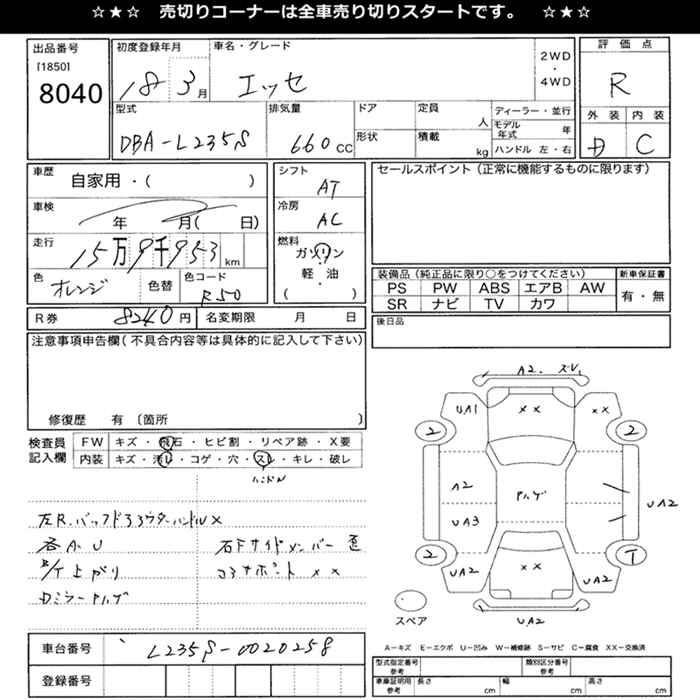 ☆★☆ 売切りコーナーは全車売り切りスタートです。 ☆★☆
出品番号
[1850]
8040
初度登録年月
18 3月
車名・グレード
エッセ
2WD
・
4WD
評価点
R
外装 内装
D C
型式
DBA-L235S
排気量
660CC
ドア
形状
定員
人
積載
kg
ディーラー・並行
モデル年式 年
ハンドル 左・右
車歴
自家用・( )
車検
年 月( 日)
走行
15万9千953km
色
オレンジ
色替
色コード
R50
シフト
AT
冷房
AC
燃料
ガソリン
・
軽・油
( )
セールスポイント(正常に機能するものに限ります)
装備品(純正品に限り○をつけてください)
PS PW ABS エアB AW
SR ナビ TV カワ
新車保証書
有・無
R券 8240円
名変期限 月 日
後日品
注意事項申告欄(不具合内容等は具体的に記入して下さい)
修復歴 有 〔箇所 〕
検査員
記入欄
FW キズ・飛石・ヒビ割・リペア跡・X要
内装 キズ・汚れ・コゲ・穴・スレ・キレ・破レ
ハンドル
各A.U
上がり
Dミラーハゲ
右Fサイドメンバー歪
コアサポート XX
A2. ズレ
UA1
XX
XX
2
2
A2
UA3
ハゲ
UA2
2
T
UA2
XX
UA2
UA2
スペア
A-キズ E-エクボ U-凹み W-補修跡 S-サビ C-腐食 XX-交換済
車台番号
L235S-0020258
登録番号
型式指定番号
参考
類別区分番号
参考
車庫証明用
参考
長さ cm
幅 cm
高さ cm